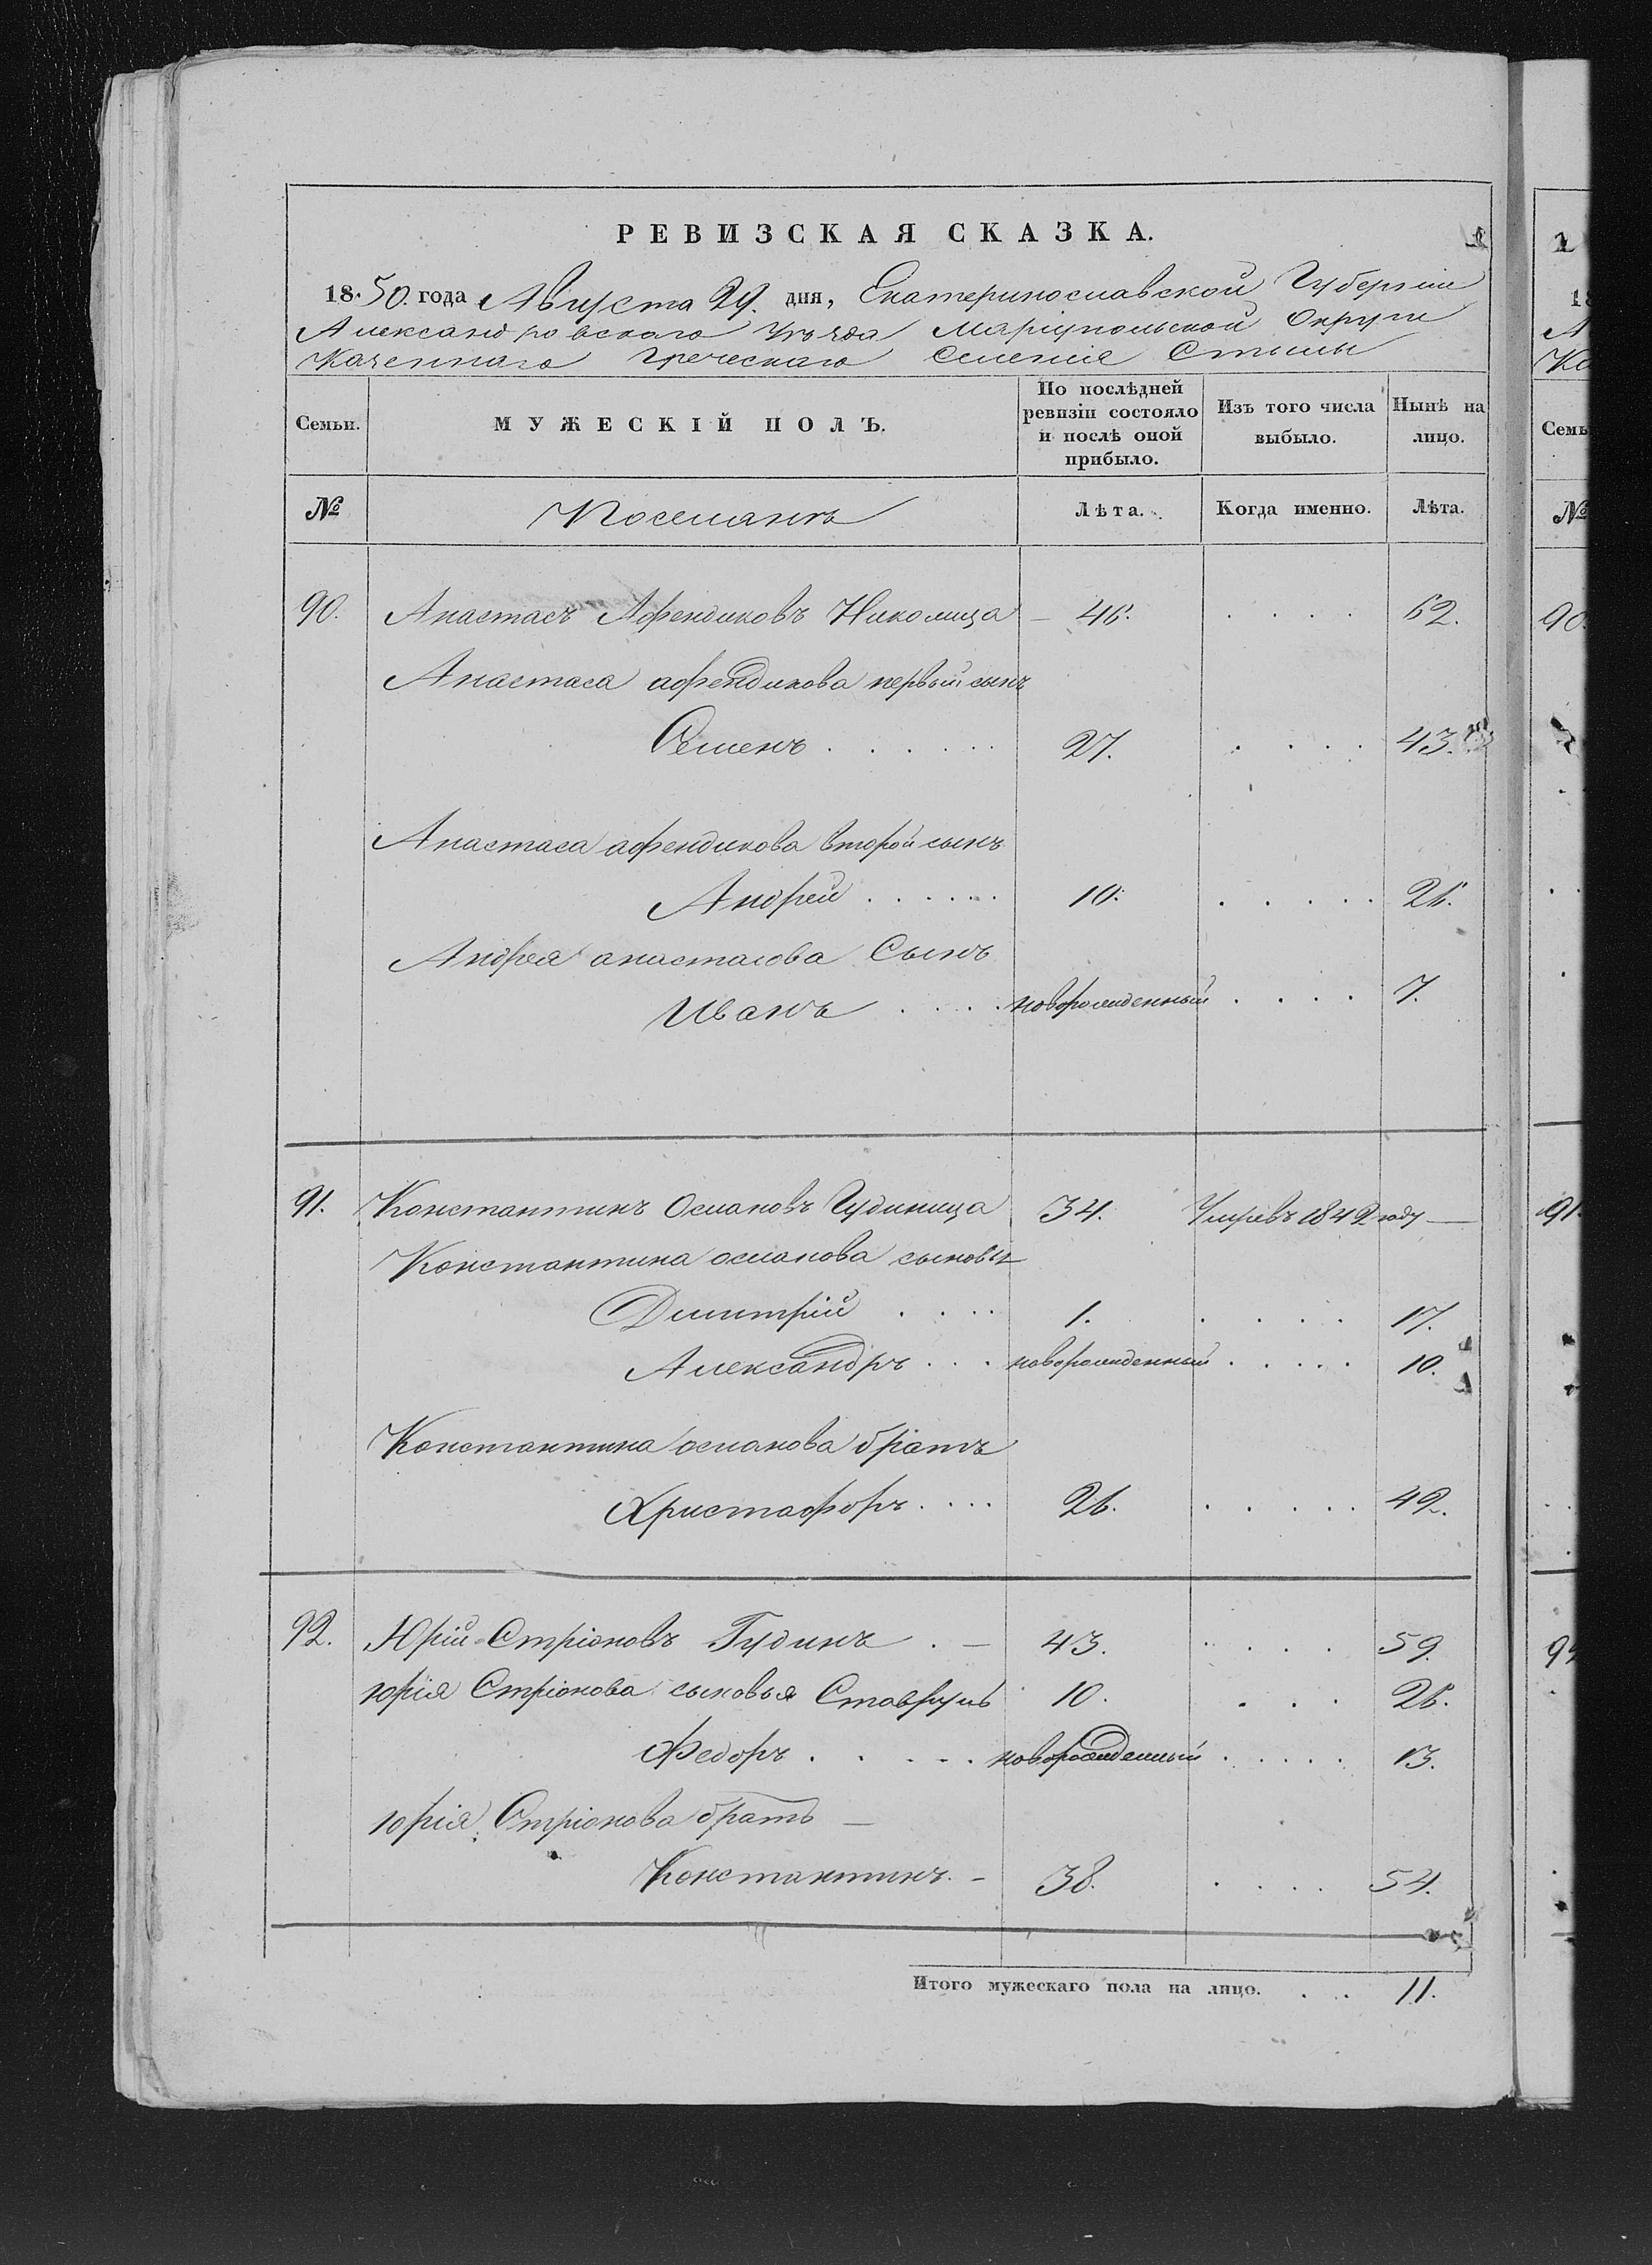 РЕВИЗСКАЯ СКАЗКА.
1850. года Августа 29. дня, Екатеринославской Губерніи
Александровскаго Уѣзда Маріупольской Округи
Казеннаго Греческаго Селенія Стылы
Семьи. МУЖЕСКІЙ ПОЛЪ. По послѣдней ревизіи состояло и послѣ оной прибыло. Изъ того числа выбыло. Нынѣ на лицо.
№ Поселянъ Лѣта. Когда именно. Лѣта.
90. Анастасъ Афендиковъ Николица — 46. . . . . 62.
Анастаса афендикова первый сынъ
Семенъ . . . . . . 27. . . . . 43.
Анастаса афендикова второй сынъ
Андрей . . . . . . 10. . . . . . 26.
Андрея анастасова Сынъ
Иванъ . . . . новорожденный . . . . 7.
91. Константинъ Османовъ Гудиница 34. Умре въ 1842 году —
Константина османова сыновья
Дмитрій . . . . 1. . . . . 17.
Александръ . . . новорожденный . . . . . 10.
Константина османова братъ
Христафоръ . . . . 26. . . . . . 42.
92. Юрій Стріоновъ Гудинъ . — 43. . . . . 59.
юрія Стріонова сыновья Ставрулъ 10. . . . 26.
Федоръ . . . . . новорожденный . . . . . 13.
юрія Стріонова братъ —
Константинъ. – 38. . . . . 54.
Итого мужескаго пола на лицо. . . 11.